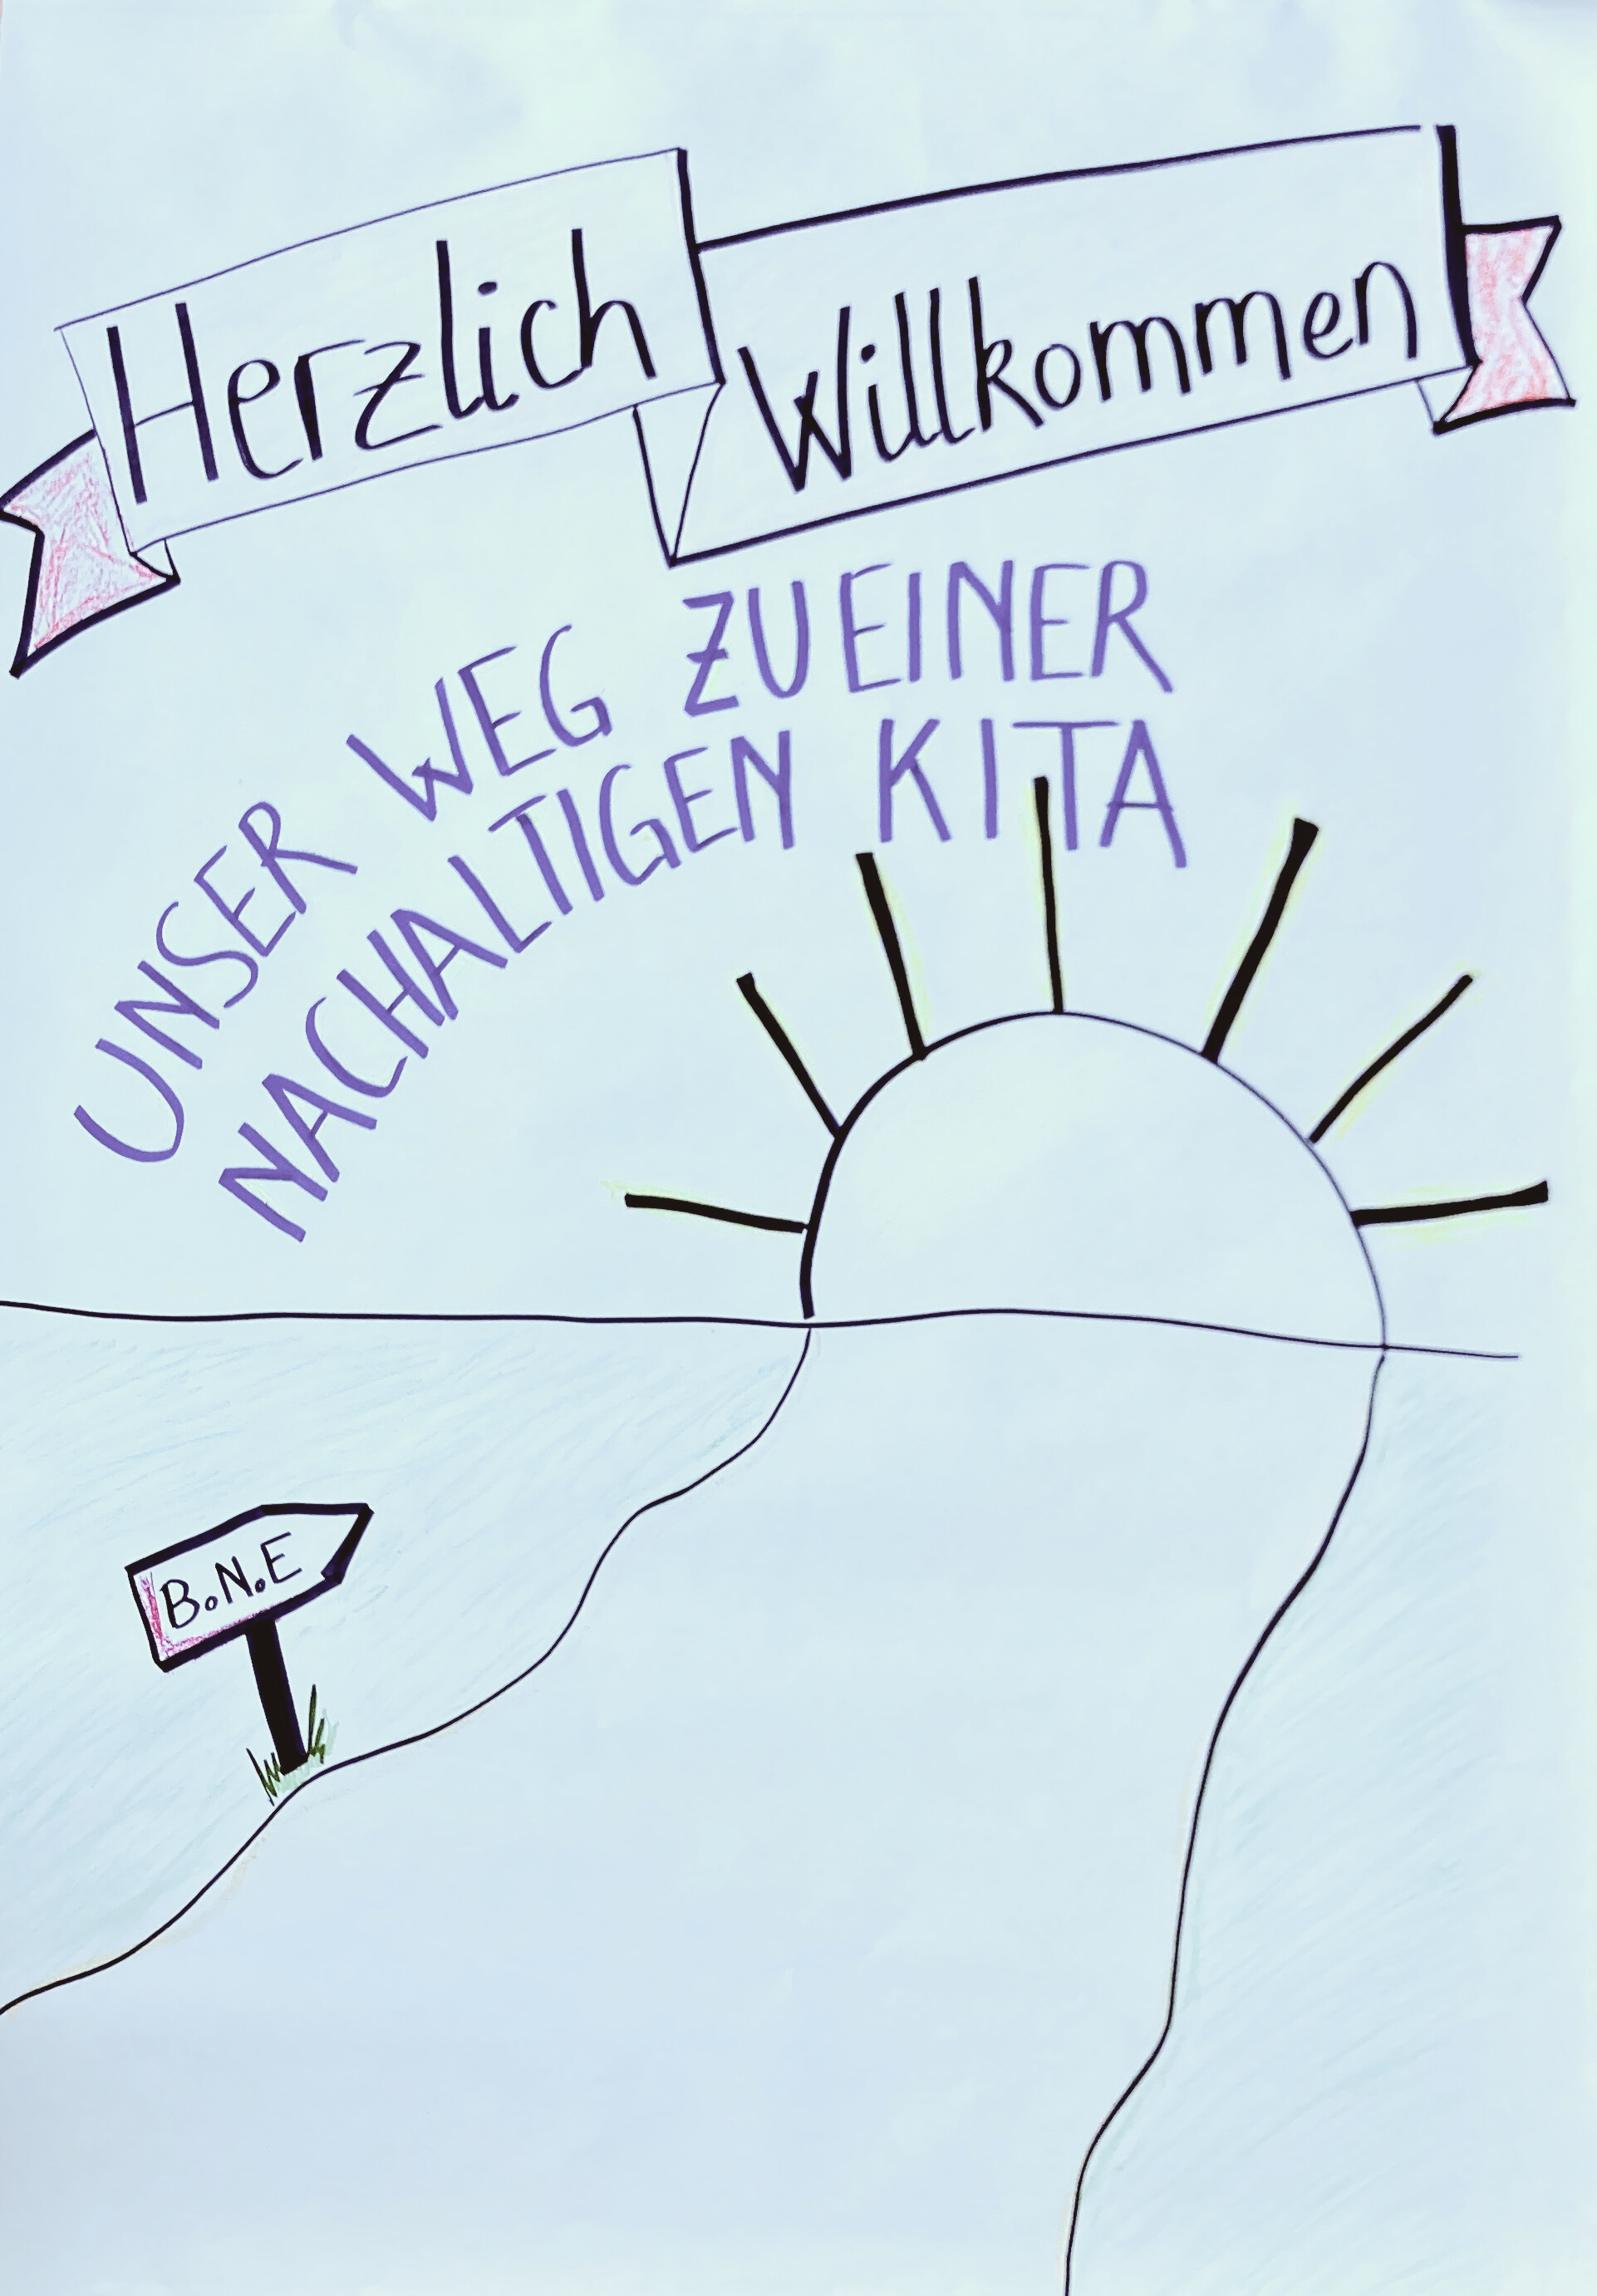 Herzlich Willkommen
UNSER WEG ZU EINER
NACHALTIGEN KITA
B.N.E